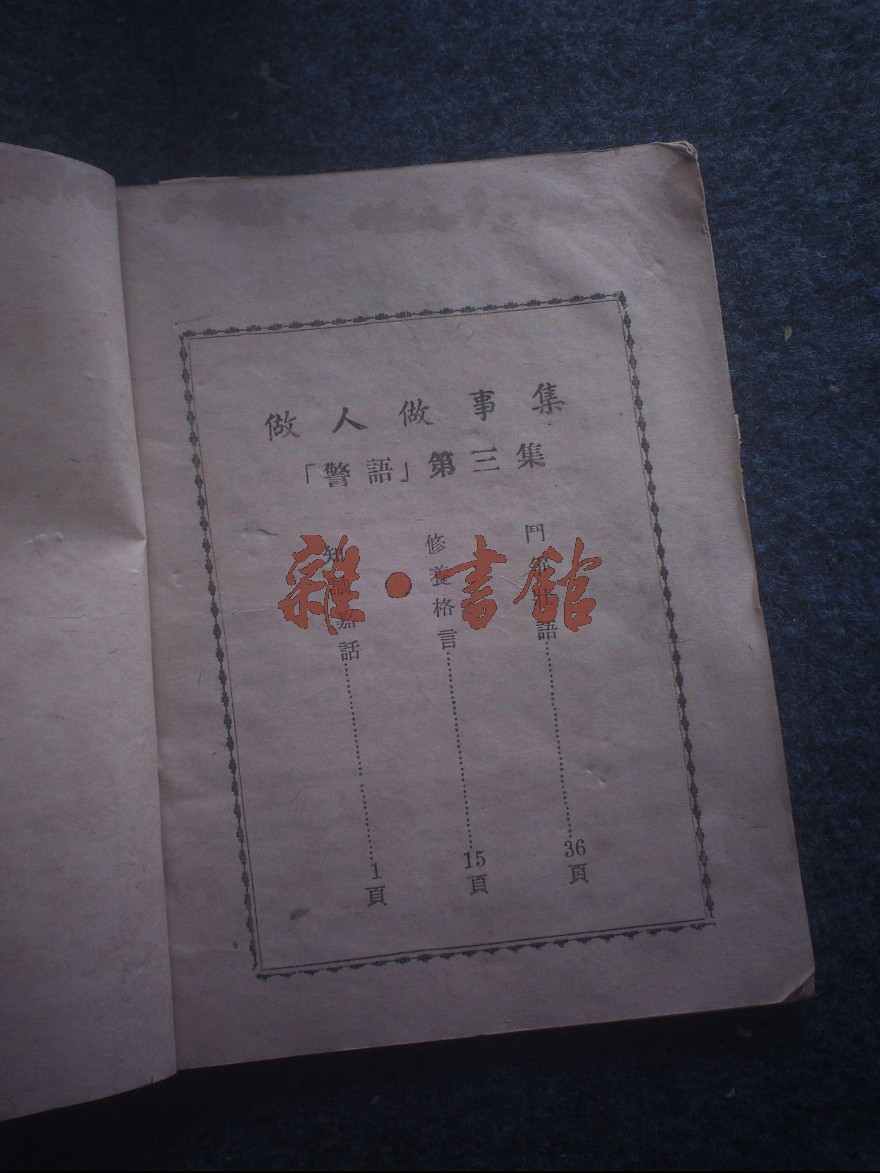 做人做事集
「警語」第三集
知識嘉話……1頁
修養格言……15頁
鬥爭語……36頁
雜·書館